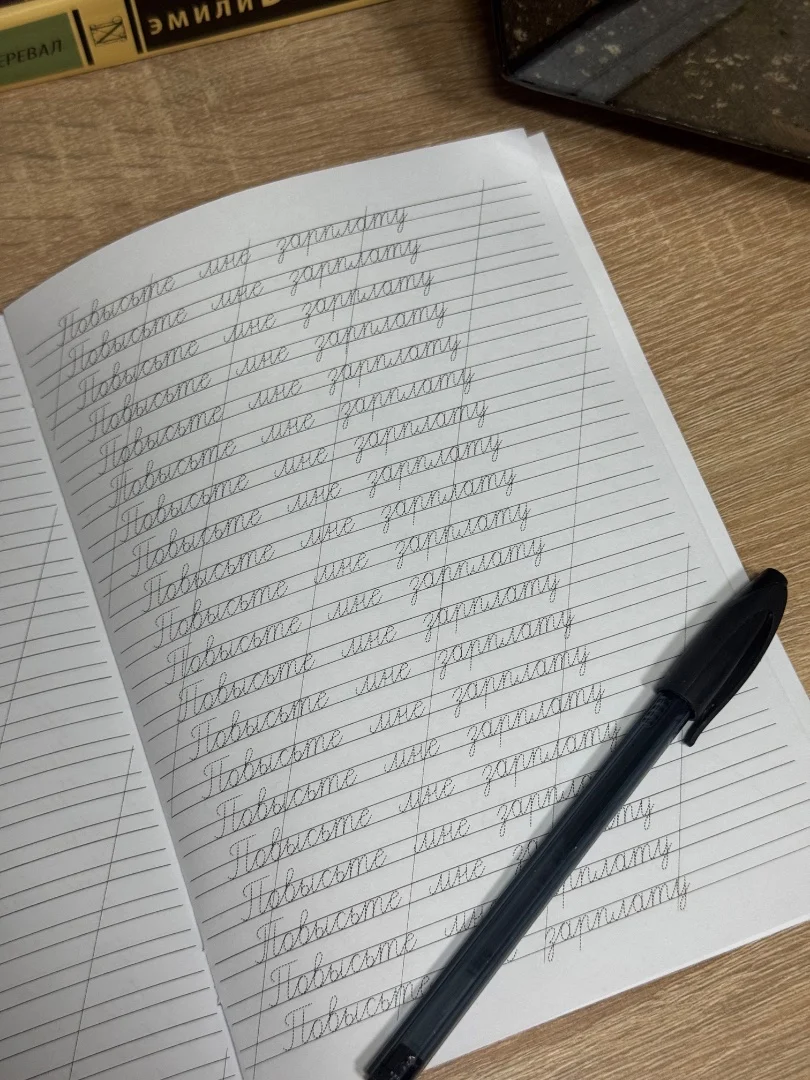 ЕРЕВАЛ
ЭМИЛИ
Повысьте мне зарплату
Повысьте мне зарплату
Повысьте мне зарплату
Повысьте мне зарплату
Повысьте мне зарплату
Повысьте мне зарплату
Повысьте мне зарплату
Повысьте мне зарплату
Повысьте мне зарплату
Повысьте мне зарплату
Повысьте мне зарплату
Повысьте мне зарплату
Повысьте мне зарплату
Повысьте мне зарплату
Повысьте мне зарплату
Повысьте мне зарплату
Повысьте мне
Повысьте мне
Повысьте
Повысьте зарплату